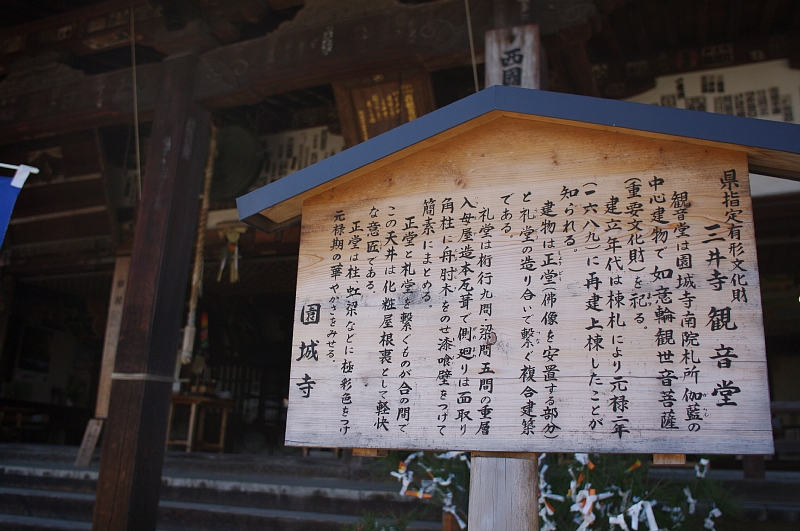 県指定有形文化財
三井寺観音堂
観音堂は園城寺南院札所伽藍の
中心建物で如意輪観世音菩薩
(重要文化財)を祀る。
建立年代は棟札により元禄二年
(一六八九)に再建上棟したことが
知られる。
建物は正堂(佛像を安置する部分)
と礼堂の造り合いで繋ぐ複合建築
である。
礼堂は桁行九間・梁間五間の重層
入母屋造本瓦葺で側廻りは面取り
角柱に舟肘木をのせ漆喰壁をつけて
簡素にまとめる。
正堂と礼堂を繋ぐものが合の間で
この天井は化粧屋根裏として軽快
な意匠である。
正堂は柱・虹梁などに極彩色をつけ
元禄期の華やかさをみせる。
園城寺
西國